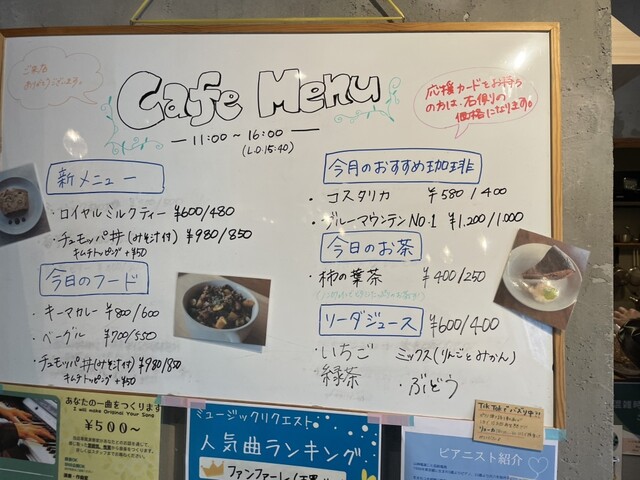 ご来店
ありがとうございます。
Cafe Menu
11:00～16:00
(L.O.15:40)
応援カードをお持ち
の方は、右側の
価格になります。
新メニュー
・ロイヤルミルクティー ¥600/480
・チュモッパ丼(みそ汁付) ¥980/850
キムチトッピング +¥50
今日のフード
・キーマカレー ¥800/600
・ベーグル ¥700/550
・チュモッパ丼(みそ汁付) ¥980/850
キムチトッピング +¥50
今月のおすすめ珈琲
・コスタリカ ¥580/400
・ブルーマウンテンNO.1 ¥1.200/1.000
今日のお茶
・柿の葉茶 ¥400/250
ソーダジュース ¥600/400
・いちご ミックス(りんごとみかん)
緑茶 ・ぶどう
あなたの一曲をつくります
I will make Original Your Song
¥500～
ミュージックリクエスト
人気曲ランキング
ピアニスト紹介